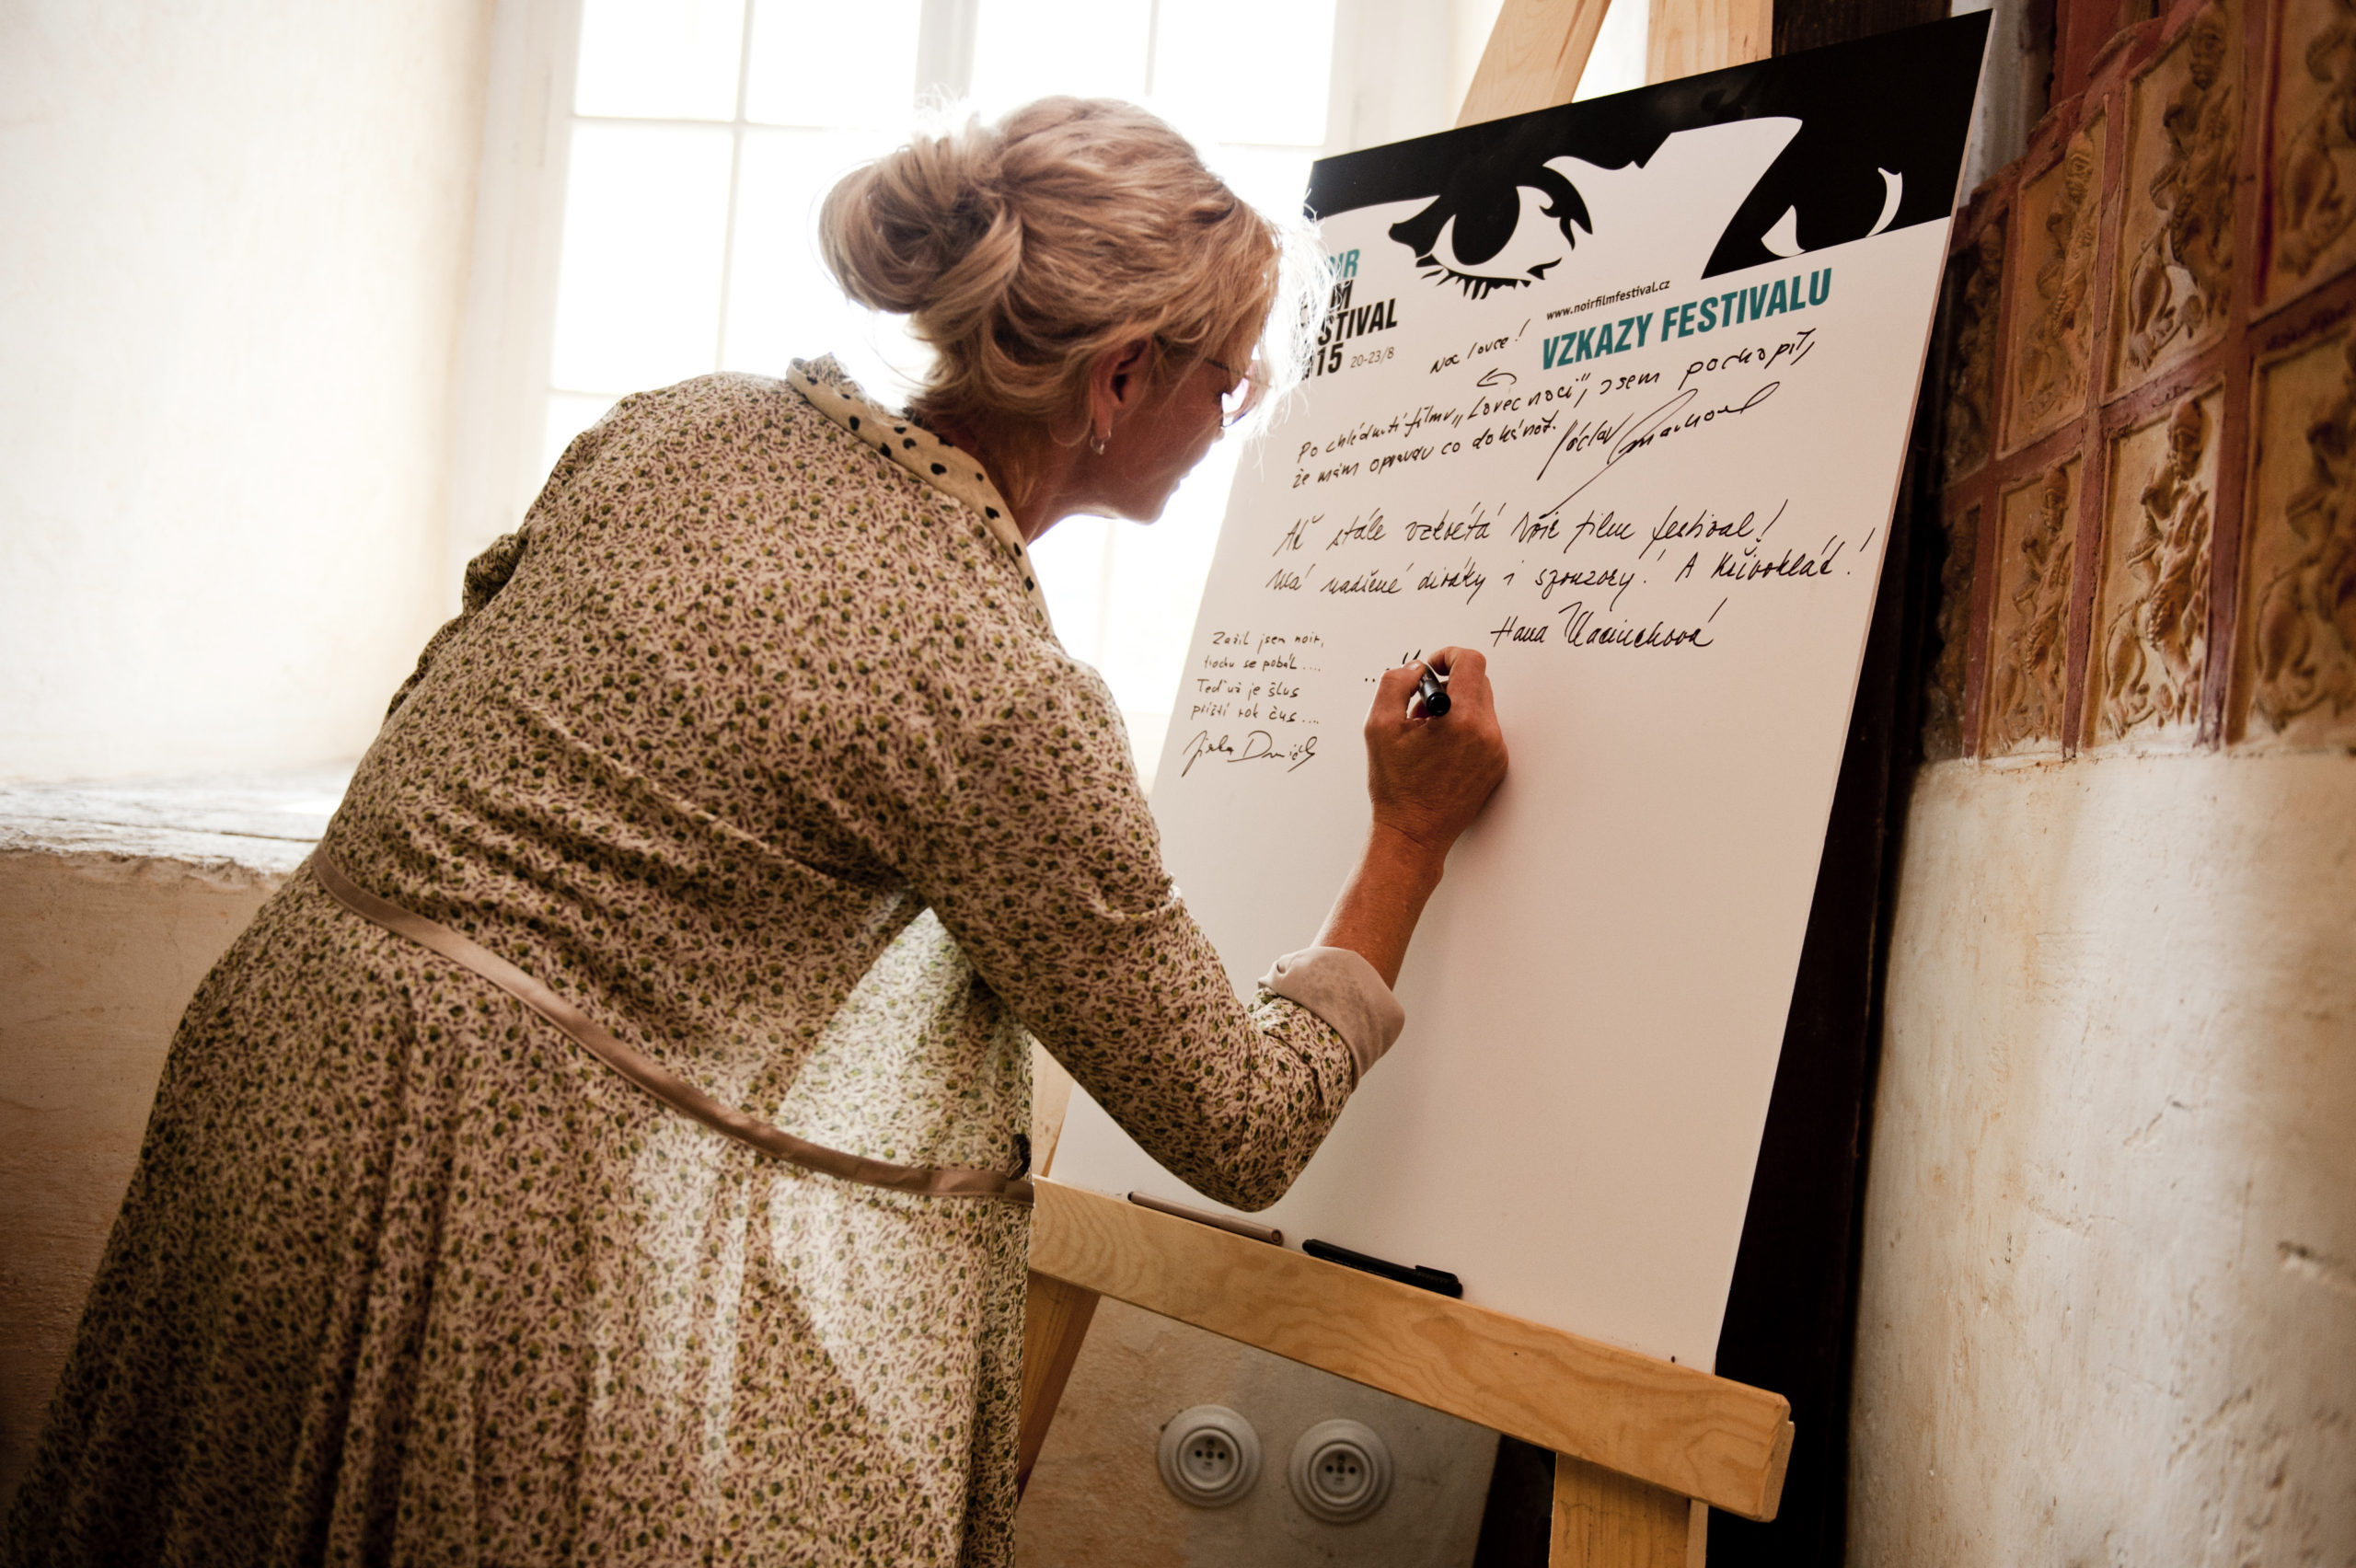 OIR
M
STIVAL
15 20-23/8
www.noirfilmfestival.cz
VZKAZY FESTIVALU
Noc lovce!
Po zhlédnutí filmu „Lovec nocí", jsem pochopil,
že mám opravdu co dohánět. Václav
Ať stále vzkvétá Noir film festival!
Má nadšené diváky i sponzory! A Křivoklát!
Hana
Zažil jsem noir,
trochu se pobál....
Teď už je šlus
příští rok čus....
Jirka